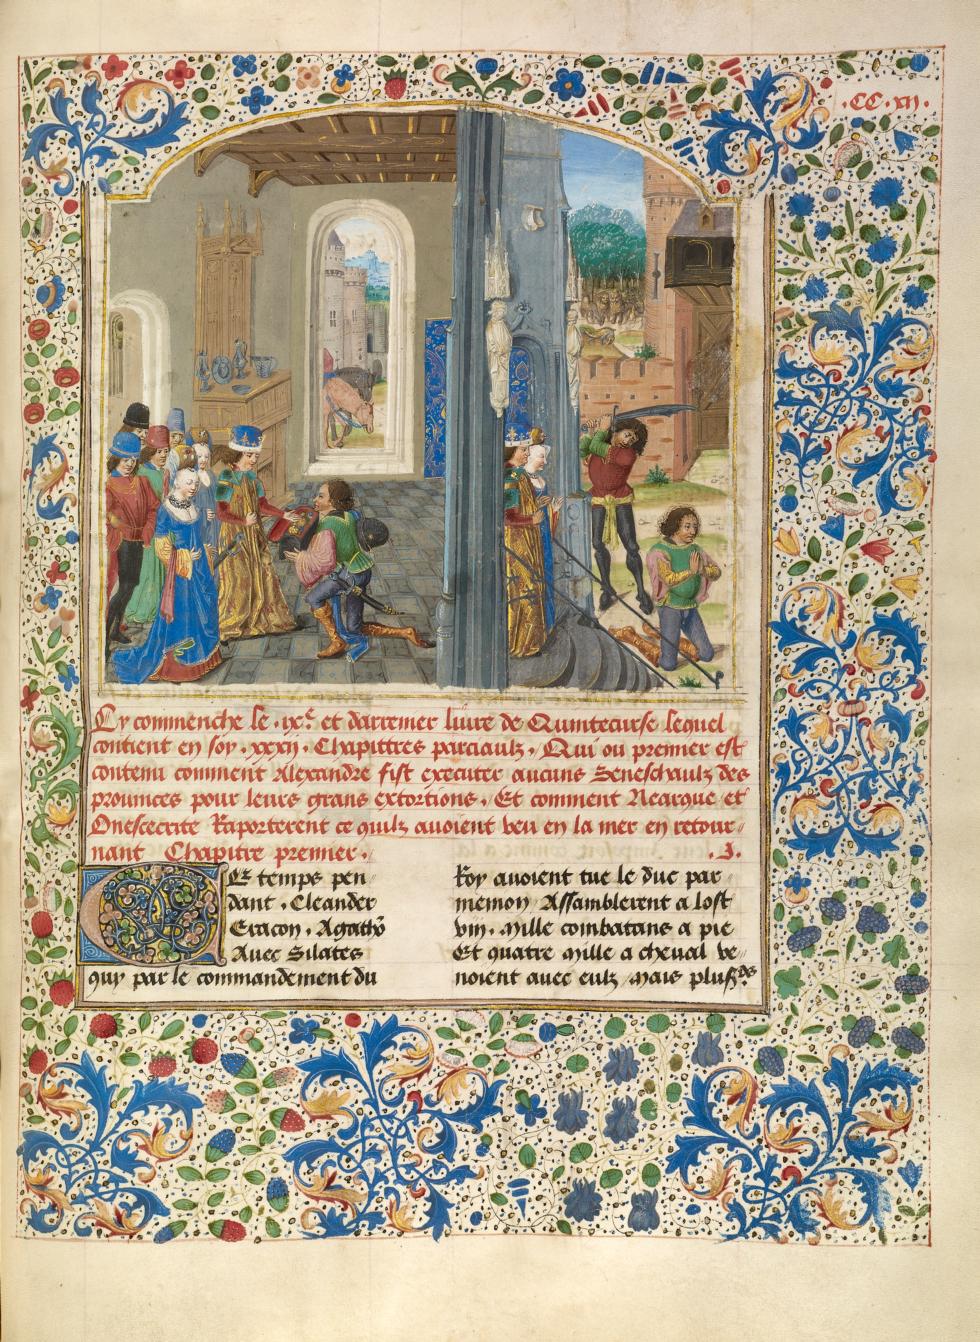 .CC.xii.
Cy commenche le .ixe. et darremer liure de Quintecurse lequel
contient en soy .xxxij. Chapittres parciaulz. Qui ou premier est
contenu comment Alexandre fist executer aucuns Seneschaulz des
prouinces pour leurs grans extortions. Et comment Nearque et
Onescecrite Raporterent ce quilz auoient veu en la mer en retour-
nant Chapitre premier. .I.
CEz temps pen
dant. Cleander
Eracon. Agatho
Auec Silates
quy par le commandement du
Roy auoient tue le duc par-
menion Assamblerent a lost
viij. Mille combatans a pie
Et quatre mille a cheual ve-
noient auec eulz Mais plusrs